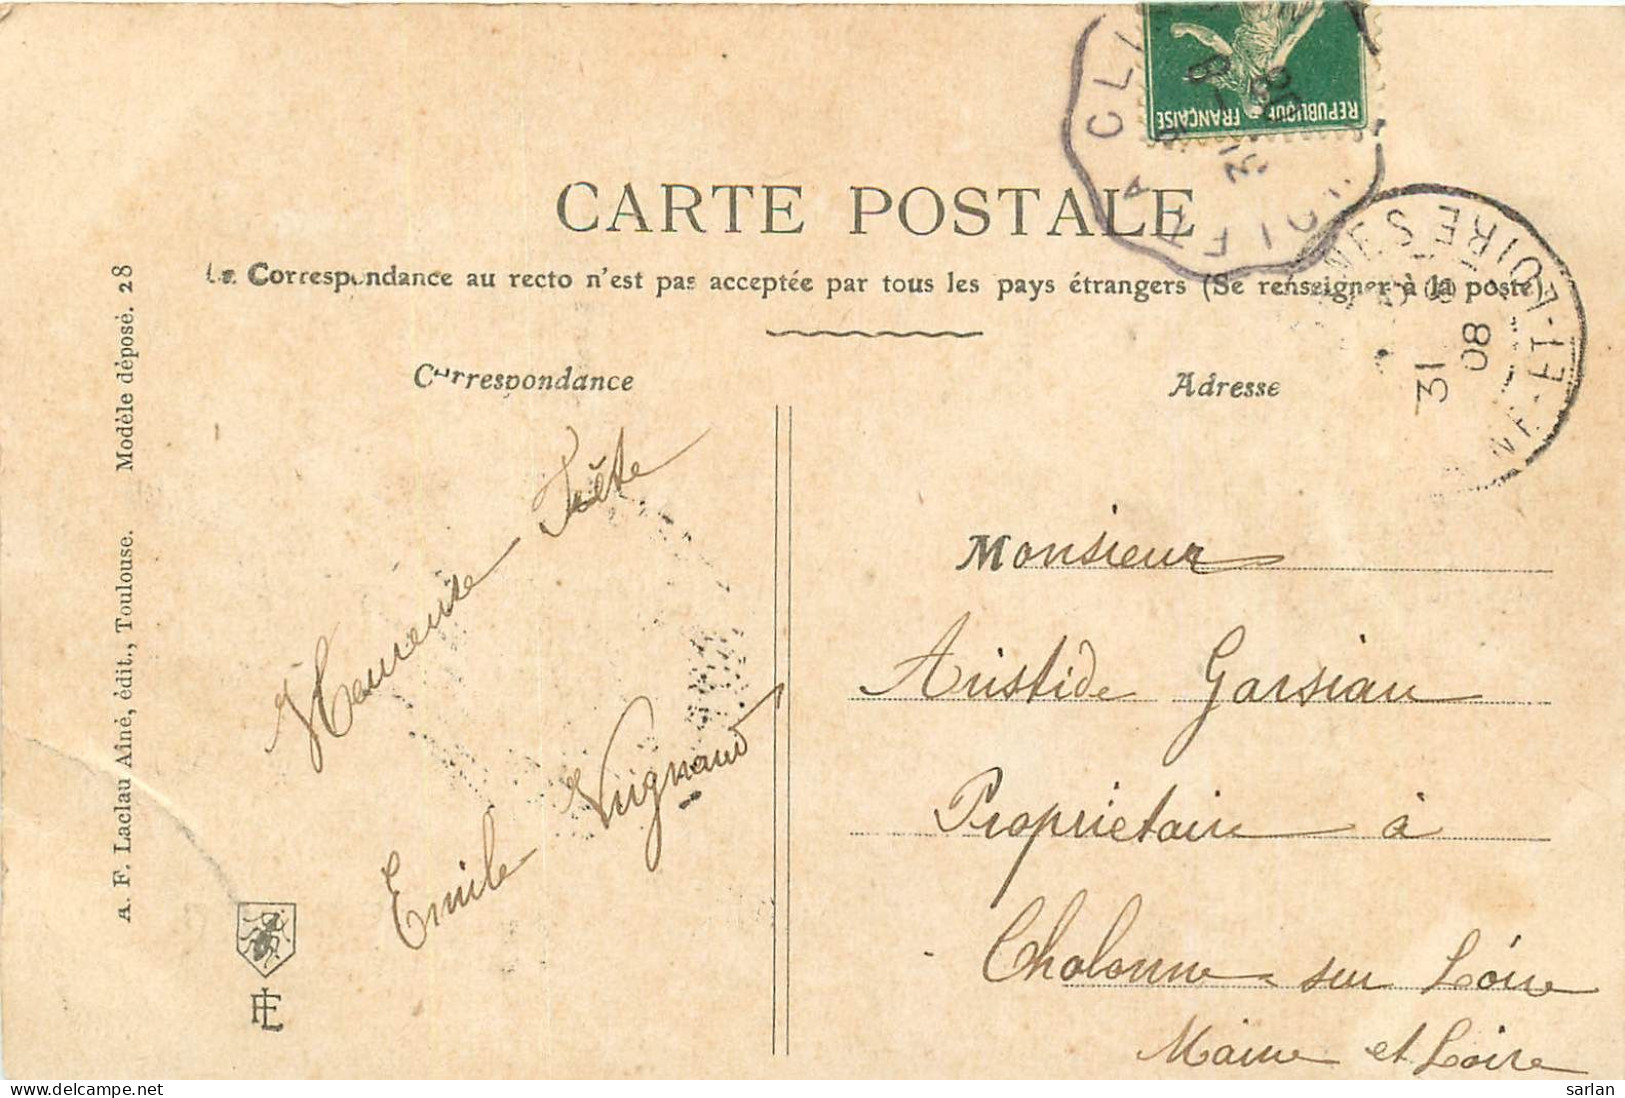 REPUBLIQUE FRANÇAISE
CARTE POSTALE
La Correspondance au recto n'est pas acceptée par tous les pays étrangers (Se renseigner à la poste)
Correspondance
Adresse
31
08
ET-LOIRE
Heureuse Fête
Emile Vrignaud
Monsieur
Aristide Garsiau
Propriétaire à
Chalonne sur Loire
Maine et Loire
A. F. Laclau Aîné, édit., Toulouse. Modèle déposé. 28
sarlan